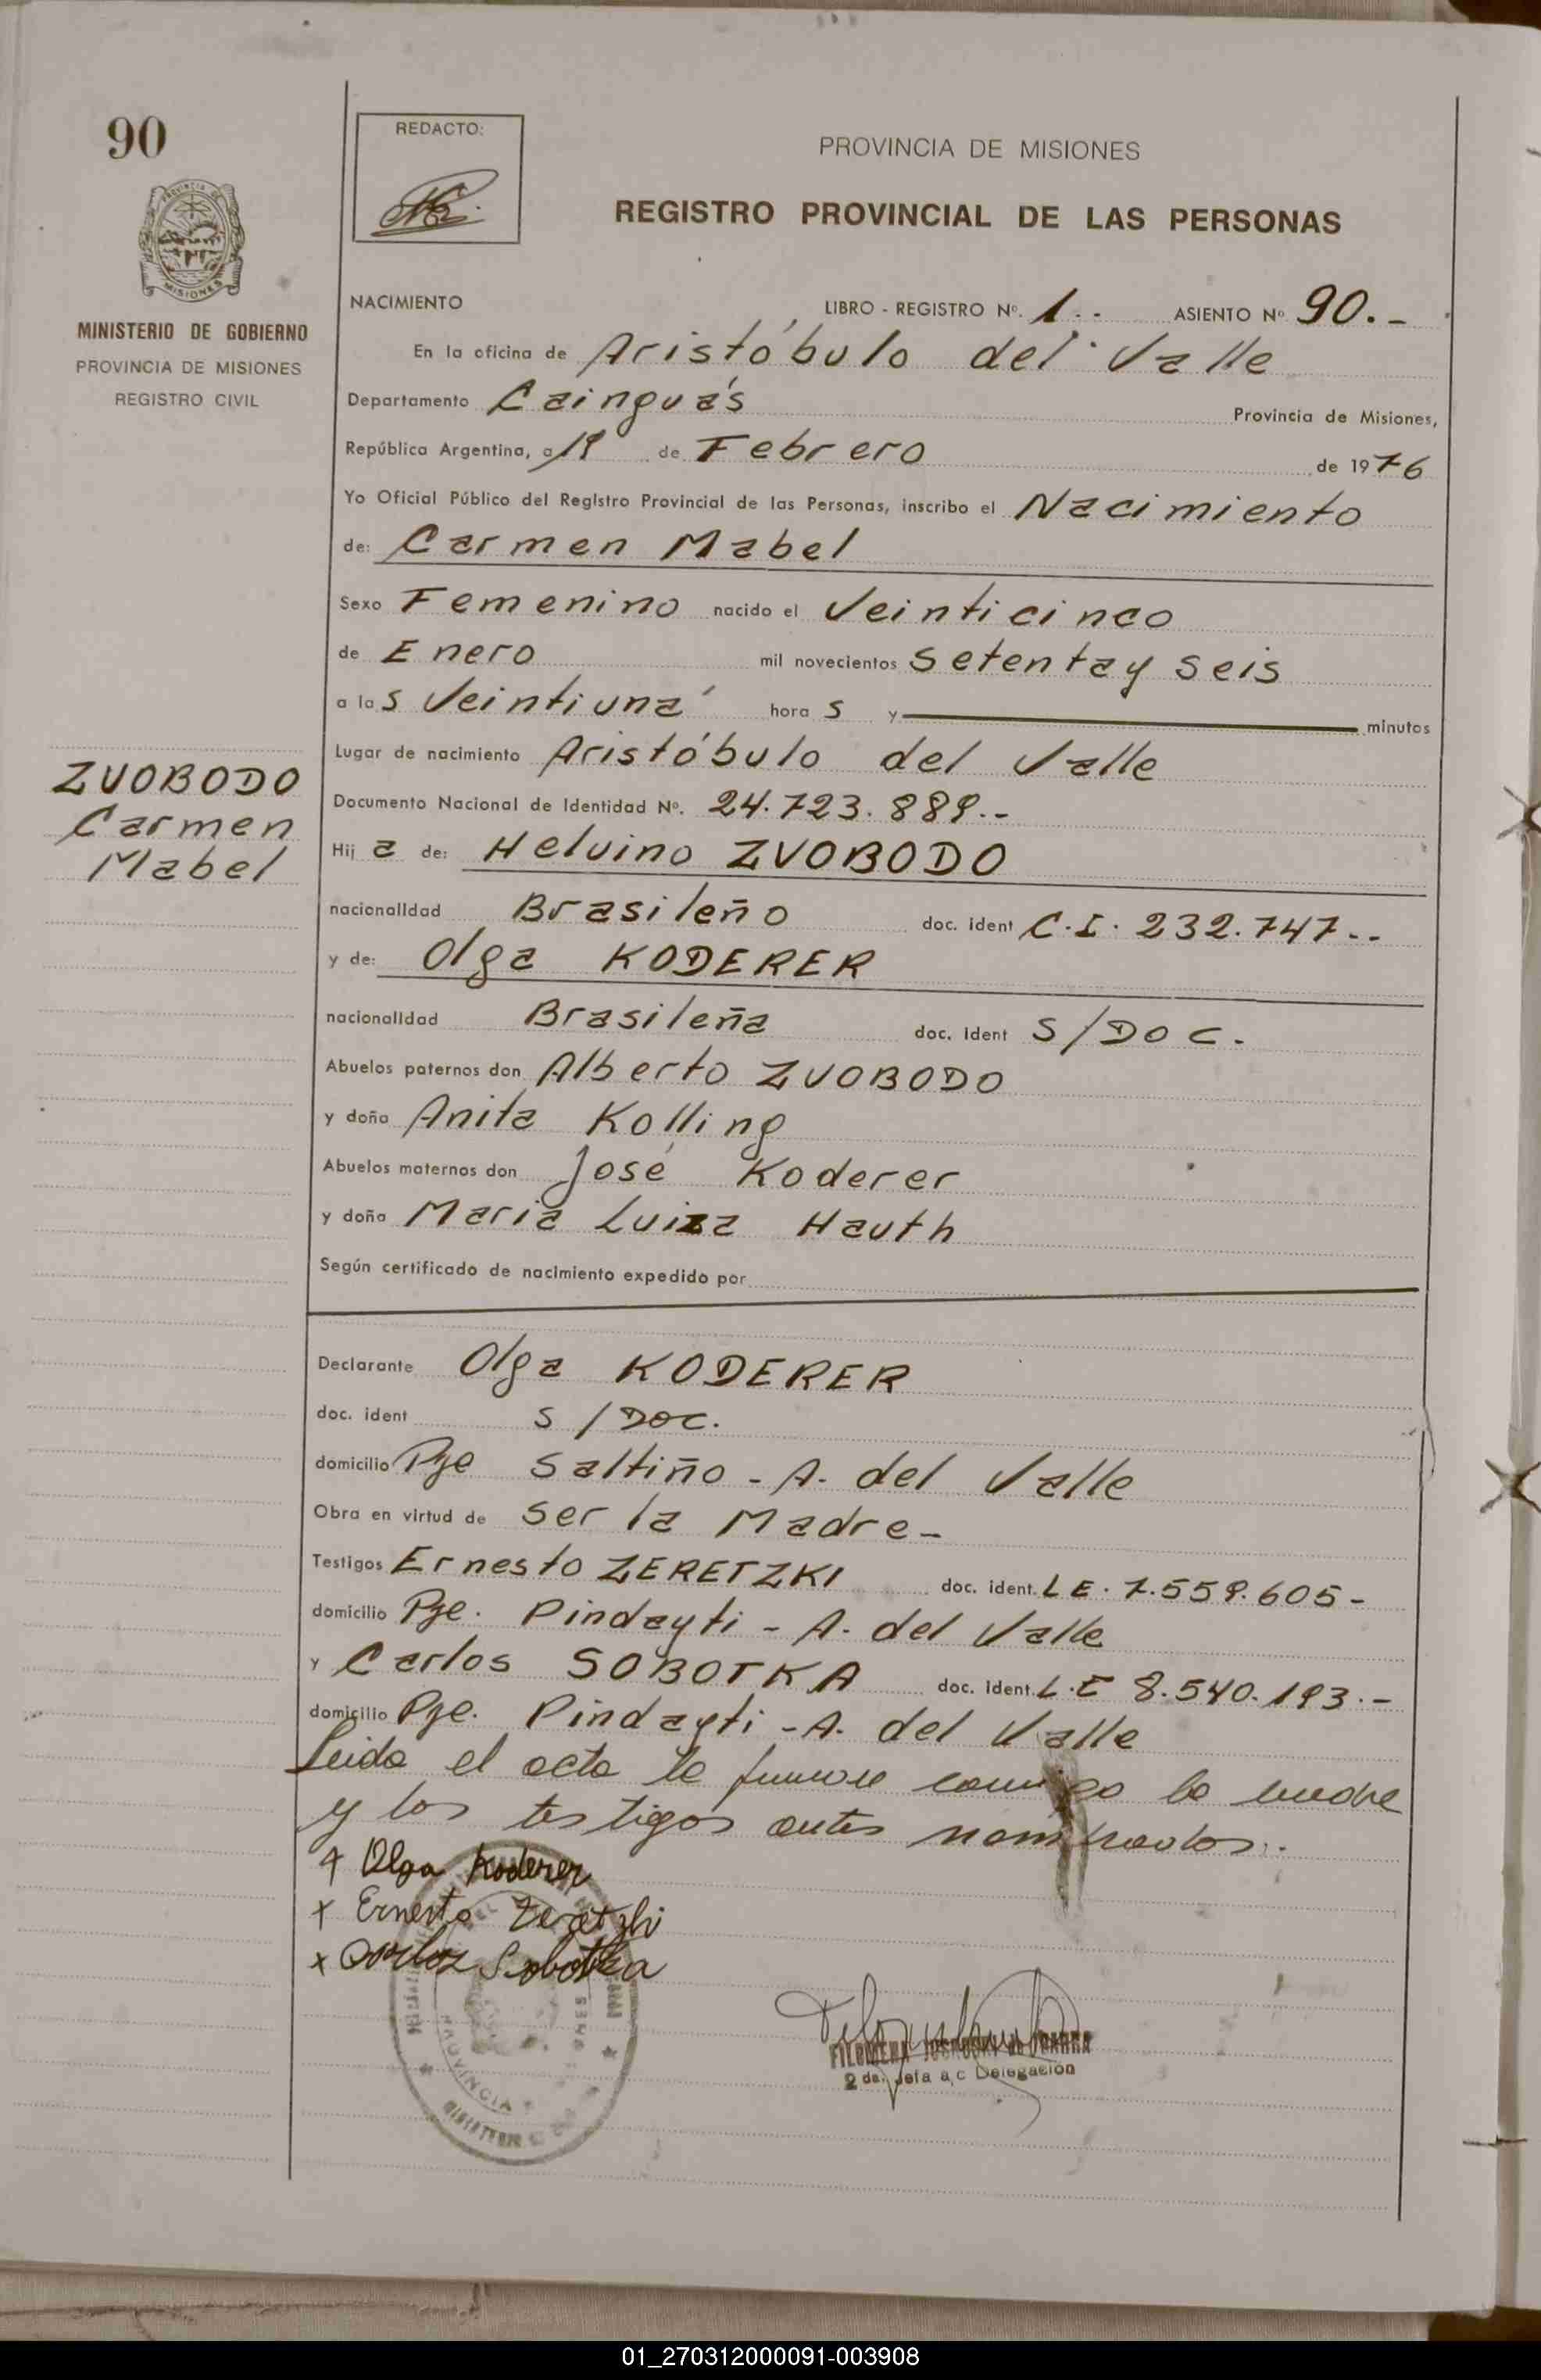 90
REDACTO:
PROVINCIA DE MISIONES
REGISTRO PROVINCIAL DE LAS PERSONAS
MISIONES
MINISTERIO DE GOBIERNO
PROVINCIA DE MISIONES
REGISTRO CIVIL
NACIMIENTO LIBRO - REGISTRO Nº. 1.. ASIENTO Nº 90.-
En la oficina de Aristóbulo del Valle
Departamento Cainguás Provincia de Misiones,
República Argentina, a de Febrero de 1976
Yo Oficial Público del Registro Provincial de las Personas, inscribo el Nacimiento
de: Carmen Mabel
Sexo Femenino nacido el Veinticinco
de Enero mil novecientos Setenta y seis
a las Veintiuna horas y minutos
Lugar de nacimiento Aristóbulo del Valle
ZVOBODO
Carmen
Mabel
Documento Nacional de Identidad Nº. 24.723.889.--
Hija de: Helvino ZVOBODO
nacionalidad Brasileño doc. ident C.I. 232.747--
y de: Olga KODERER
nacionalidad Brasileña doc. ident S/DOC.
Abuelos paternos don Alberto ZVOBODO
y doña Anita Kolling
Abuelos maternos don José Koderer
y doña Maria Luiza Hauth
Según certificado de nacimiento expedido por
Declarante Olga KODERER
doc. ident S/DOC.
domicilio Pje Saltiño - A. del Valle
Obra en virtud de ser la Madre-
Testigos Ernesto ZERETZKI doc. ident. LE. 7.559.605-
domicilio Pje. Pindayti - A. del Valle
y Carlos SOBOTKA doc. ident. L.E 8.540.193.-
domicilio Pje. Pindayti - A. del Valle
Leida el acta la firman conmigo la madre
y los testigos antes nombrados.-
+ Olga Koderer
x Ernesto Zeretzki
x Carlos Sobotka
FILOMENA DE IBARRA
2 da. Jefa a/c Delegación
PROVINCIA
MINISTERIO
01_270312000091-003908